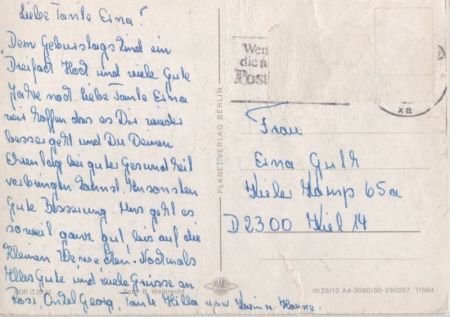 Liebe Tante Erna!
Dem Geburstagskind ein
Dreifach Hoch und viele Gute
Jahre noch. liebe Tante Erna
wir hoffen das es Dir wieder
besser geht und Du Deinen
Ehrentag bei guter Gesundheit
verbringen kannst. Ansonsten
Gute Besserung. Uns geht es
soweit ganz gut, bis auf die
kleinen Wehwehchen. Nochmals
Alles Gute und viele Grüsse an
Rosi, Onkel Georg, Tante Hilla u.s.w. Karin u. Hanne.
PLANETVERLAG BERLIN
Wen
die n
Post
Frau
Erna Guth
Kieler Kamp 65a
D 2300 Kiel 14
III/26/13 A4-3080/80-290267 11564